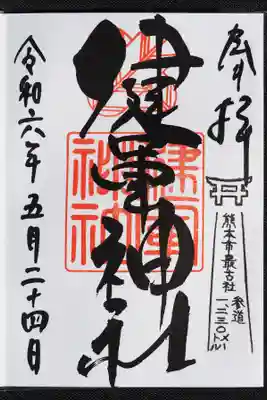 奉拝
参道
一、二三〇メートル
熊本市最古社
健軍神社
健軍
神社
令和六年五月二十四日